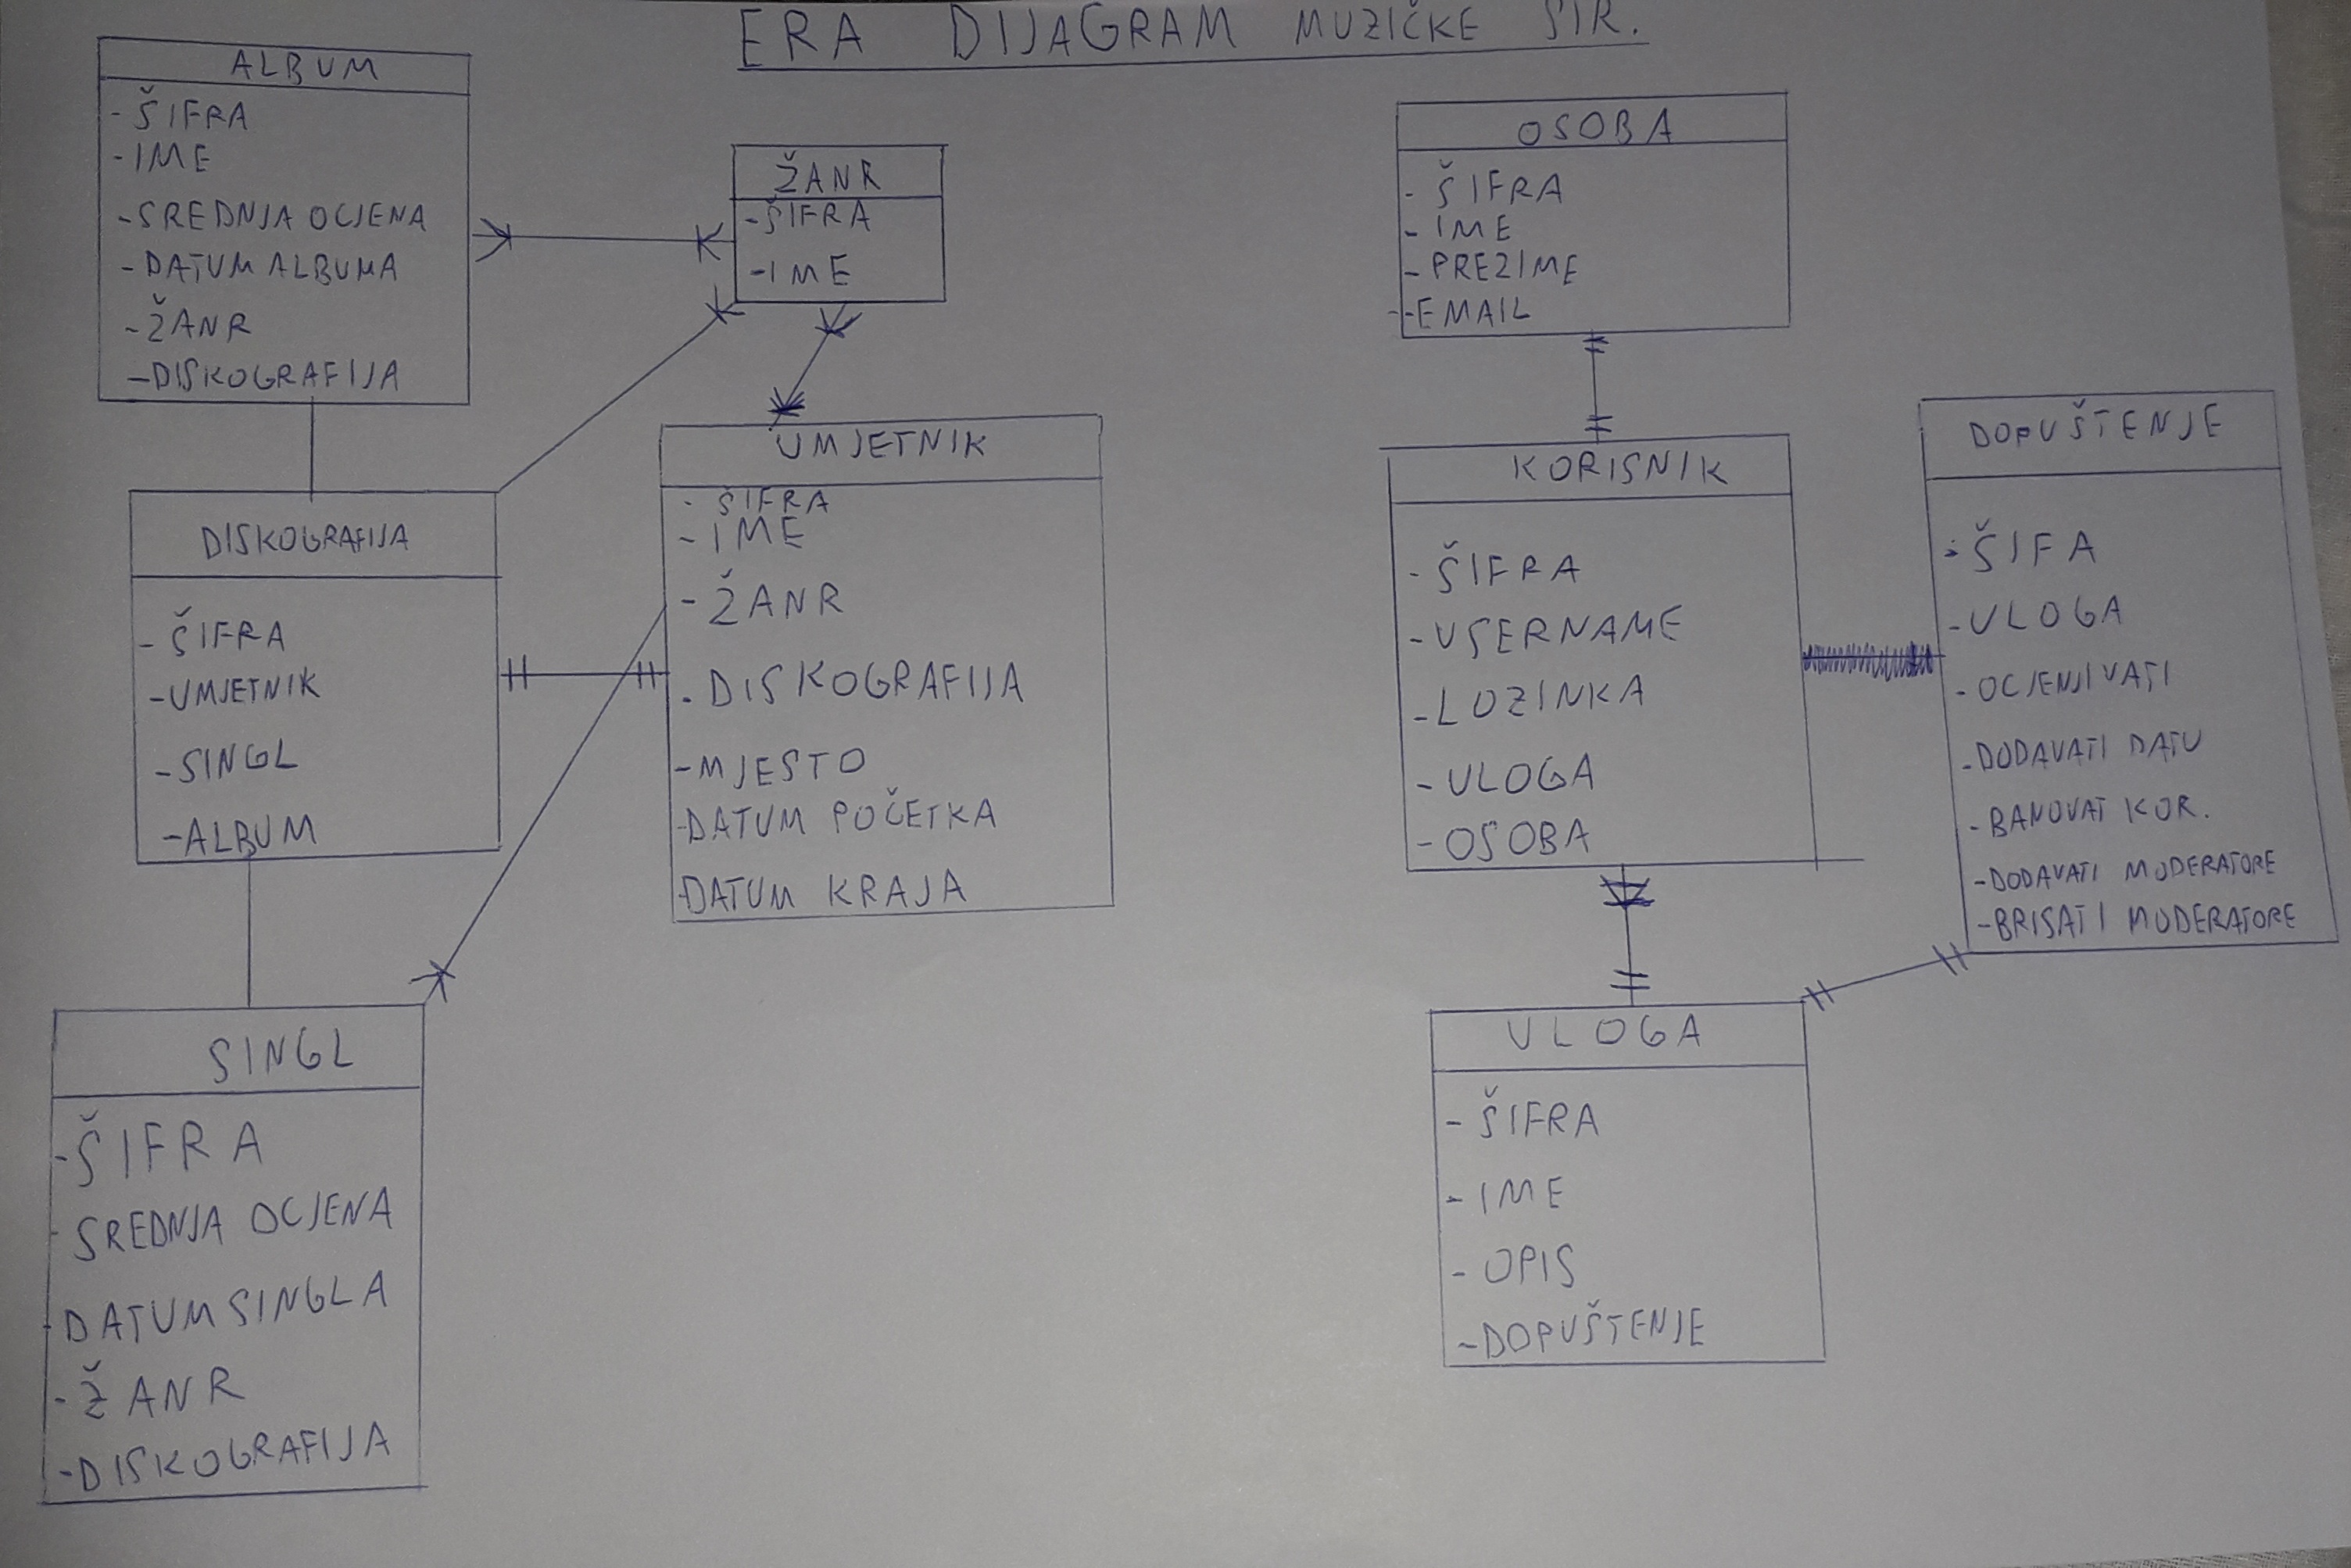 ERA DIJAGRAM MUZIČKE STR.
ALBUM
-ŠIFRA
-IME
-SREDNJA OCJENA
-DATUM ALBUMA
-ŽANR
-DISKOGRAFIJA
ŽANR
-ŠIFRA
-IME
DISKOGRAFIJA
-ŠIFRA
-UMJETNIK
-SINGL
-ALBUM
UMJETNIK
-ŠIFRA
-IME
-ŽANR
.DISKOGRAFIJA
-MJESTO
-DATUM POČETKA
-DATUM KRAJA
SINGL
-ŠIFRA
-SREDNJA OCJENA
-DATUM SINGLA
-ŽANR
-DISKOGRAFIJA
OSOBA
-ŠIFRA
-IME
-PREZIME
-EMAIL
KORISNIK
-ŠIFRA
-USERNAME
-LOZINKA
-ULOGA
-OSOBA
DOPUŠTENJE
-ŠIFA
-ULOGA
-OCJENJIVATI
-DODAVATI DATU
-BANOVAT KOR.
-DODAVATI MODERATORE
-BRISATI MODERATORE
ULOGA
-ŠIFRA
-IME
-OPIS
-DOPUŠTENJE